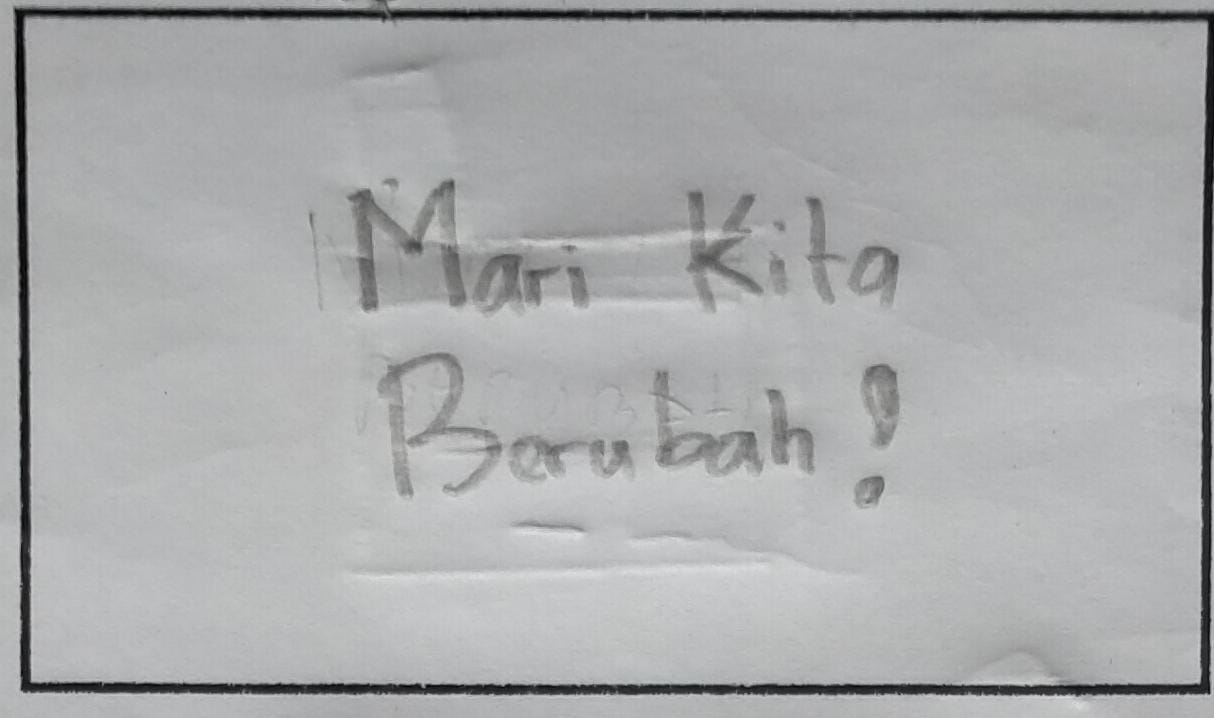 Mari Kita
Berubah!